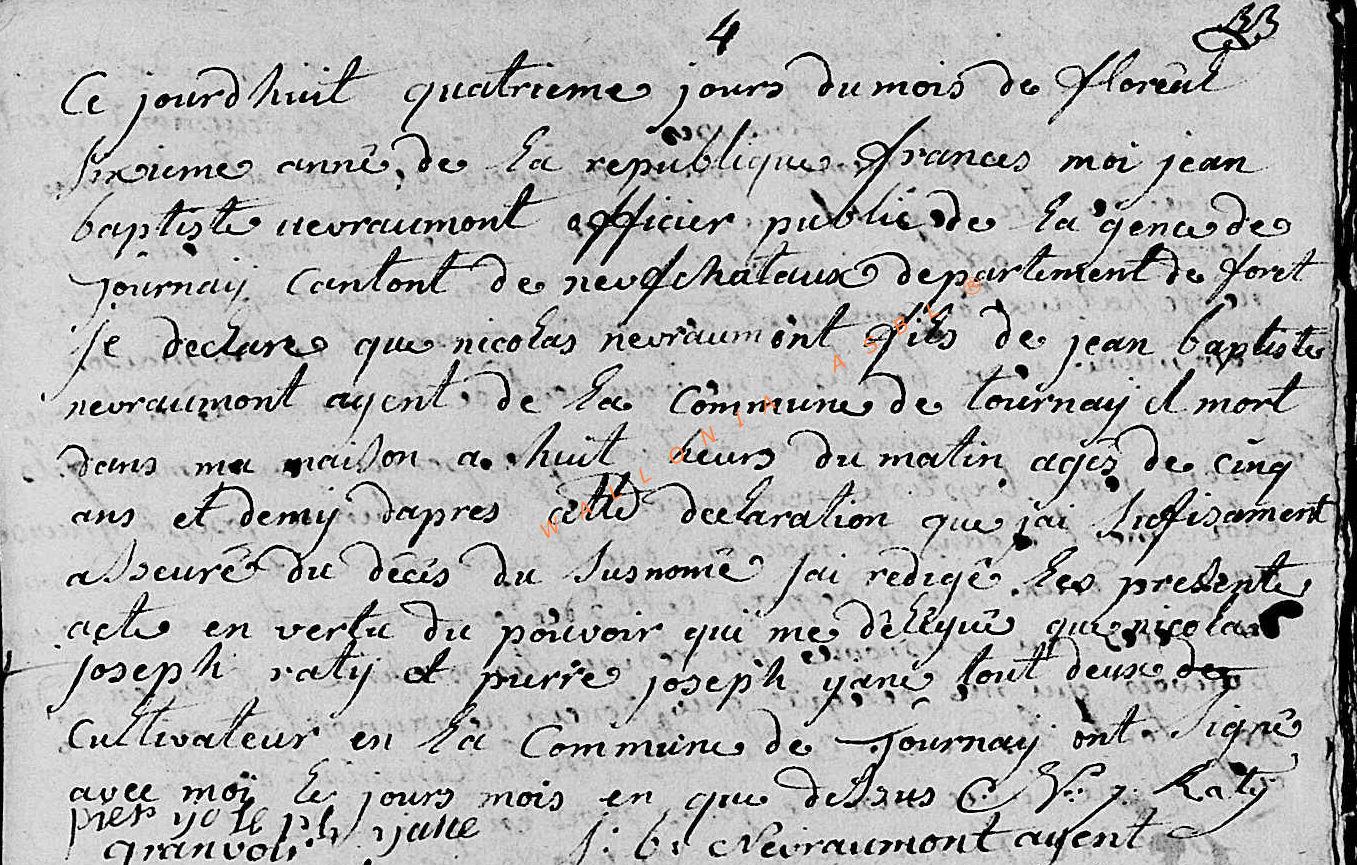 4 33
Ce jourdhuit quatrieme jours du mois de florëal
sixieme anné de la republique frances moi jean
baptiste nevraumont officier public de la gence de
Tournaij cantont de neufchataux departement de foret
Je declare que nicolas nevraumont fils de jean baptiste
nevraumont agent de la commune de tournaij et mort
dans ma maison a huit heurs du matin agés de cinq
ans et demij dapres cette declaration que jai sufisament
asseuré du décés du susnomé jai redigé les presente
acte en vertu du pouvoir qui me délégué que nicolas
joseph ratij et pierre joseph yane tout deux de
cultivateur en la commune de Tournaij ont signé
avec moi le jours mois en que dessus C. N. J. Ratij
piers yoseph yane
granvoir J: b: Nevraumont agent
WALLONIA ASBL ©